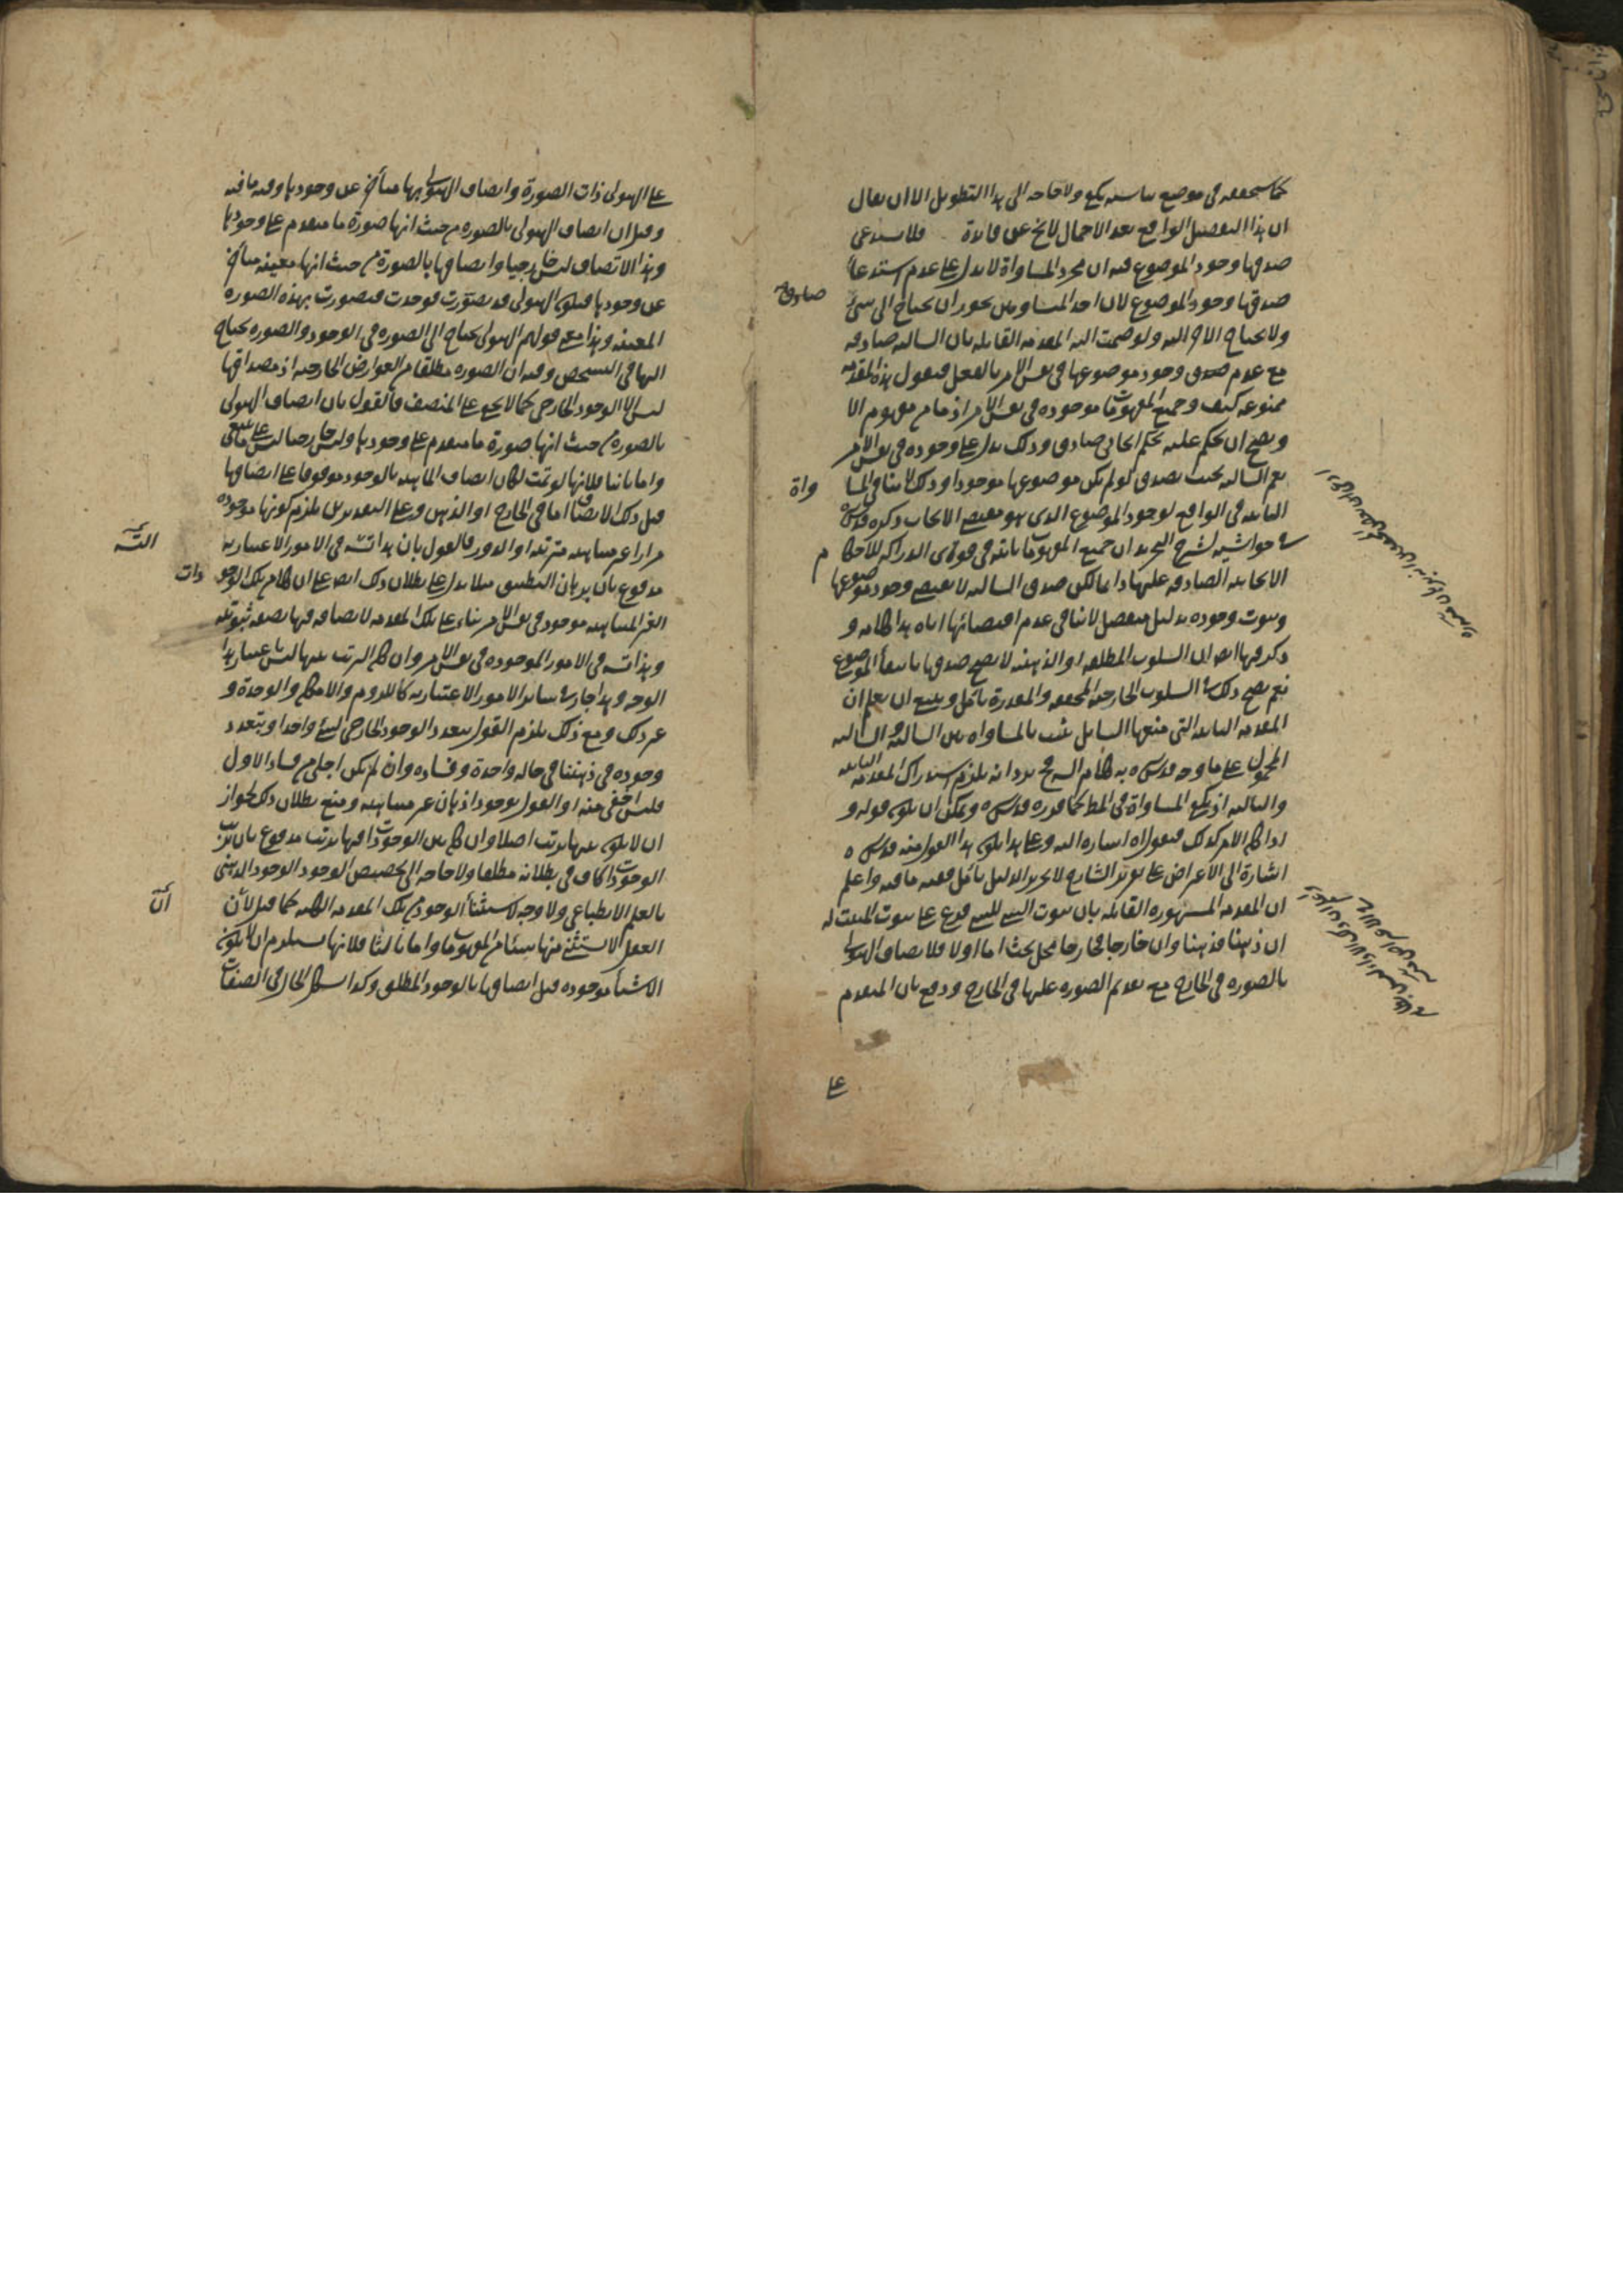 كما سنحققه في موضع يناسبه يكفي ولا حاجة الى هذا التطويل الا ان يقال
ان هذا التفصيل الواقع بعد الاجمال لا يخ عن فائدة فلا يستدعى
صدقها وجود الموضوع فيه ان مجرد المساواة لا يدل على عدم استدعاء
صدقها وجود الموضوع لان احد المتساويين يجوز ان يحتاج الى شئ
صادقة
ولا يحتاج الاخر اليه ولو ضمت اليه المقدمة القائلة بان السالبة صادقة
مع عدم صدق وجود موضوعها في نفس الامر بالفعل فنقول هذه المقدمة
ممنوعة كيف وجميع المفهومات موجودة في نفس الامر اذ ما من مفهوم الا
ويصح ان يحكم عليه بحكم ايجابي صادق وذلك يدل على وجوده في نفس الامر
نعم السالبة بحيث يصدق لو لم يكن موضوعها موجودا وذلك لا ينافي المسا
واة
الثابتة في الواقع لوجود الموضوع الذى هو مقتضى الايجاب ذكره قدس سره
في حواشيه لشرح التجريد ان جميع المفهومات ثابتة في قوة ى الدراكة للاحكام
الايجابية الصادقة عليها دائما لكن صدق السالبة لا يقتضى وجود موضوعها
وثبوت وجوده بدليل منفصل لا ينافي عدم اقتضائها اياه هذا كلامه و
ذكر فيها ايضا ان السلوب المطلقة او الذهنية لا يصح صدقها بانتفاء الموضوع
نعم يصح ذلك في السلوب الخارجية المحققة والمقدرة تأمل وينبغي ان يعلم ان
المقدمة الثابتة التي منعها السايل يثبت بالمساواة بين السالبة و السالبة
المحمول على ما وجه قدس سره به كلام الشرح يرد انه يلزم استدراك المقدمة الثابتة
والثالثة اذ يكفي المساواة في المط كما قرره قدس سره ويمكن ان يكون قوله و
اذا كان الامر كذلك فيقول اه اشارة اليه وعلى هذا يكون هذا القول منه قدس سره
اشارة الى الاعتراض على تقرير الشارح لا تحرير الدليل تأمل ففيه ما فيه واعلم
ان المقدمة المشهورة القائلة بان ثبوت الشئ للشئ فرع على ثبوت المثبت له
ان ذهنا فذهنا وان خارجا فخارجا محل بحث اما اولا فلاتصاف الهيولى
بالصورة في الخارج مع تقدم الصورة عليها في الخارج ودفع بان المتقدم
على
على الهيولى ذات الصورة واتصاف الهيولى بها متأخر عن وجودها وفيه ما فيه
وقيل ان اتصاف الهيولى بالصورة من حيث انها صورة ما متقدم على وجودها
وهذا الاتصاف ليس خارجيا واتصافها بالصورة من حيث انها معينة متأخر
عن وجودها فيكون الهيولى قد تصورت فوجدت فتصورت بهذه الصورة
المعينة وهذا مع قولهم الهيولى يحتاج الى الصورة في الوجود والصورة يحتاج
اليها في التشخص وفيه ان الصورة مطلقا من العوارض الخارجية اذ مصداقها
ليس الا الوجود الخارجي كما لا يخفى على المنصف فالقول بان اتصاف الهيولى
بالصورة من حيث انها صورة ما متقدم على وجودها وليس خارجيا ليس على ما ينبغي
واما ثانيا فلانها لو تمت لكان اتصاف الماهية بالوجود موقوفا على اتصافها
قبل ذلك الاتصاف اما في الخارج او الذهن وعلى التقديرين يلزم كونها موجودة
مرارا غير متناهية مترتبة او الدور فالقول بان هذا التسلسل في الامور الاعتبارية
التسلسل
مدفوع بان برهان التطبيق مثلا يدل على بطلان ذلك ايضا على ان كلام تلك الوجو
دات
الغير المتناهية موجود في نفس الامر بناء على تلك المقدمة لاتصافه فيها بصفة ثبوتية
وهذا التسلسل في الامور الموجودة في نفس الامر وان كان الترتب بينها ليس اعتباريا
الوجه وهذا جار في سائر الامور الاعتبارية كاللزوم والامكان والوحدة و
غير ذلك ومع ذلك يلزم القول بتعدد الوجود الخارجي لشئ واحد او بتعدد
وجوده في ذهننا في حالة واحدة وفساده وان لم يكن اجلى من فساد الاول
فليس اخفى منه او القول بوجود اذهان غير متناهية ومنع بطلان ذلك لجواز
ان لا يكون بينها ترتب اصلا وان كان بين الوجودات فيها ترتب مدفوع بان ترتب
الوجودات كاف في بطلانه مطلقا ولا حاجة الى تخصيص الوجود الوجود الذهني
بالعلم الانطباعي ولا وجه لاستثناء الوجود من تلك المقدمة الكلية كما قيل لان
ان
العقل لا يستثنى منها شيئا من المفهومات واما ثالثا فلانها يستلزم ان لا يكون
الاشياء موجودة قبل اتصافها بالوجود المطلق وكذا اشكل الحال في الصفات